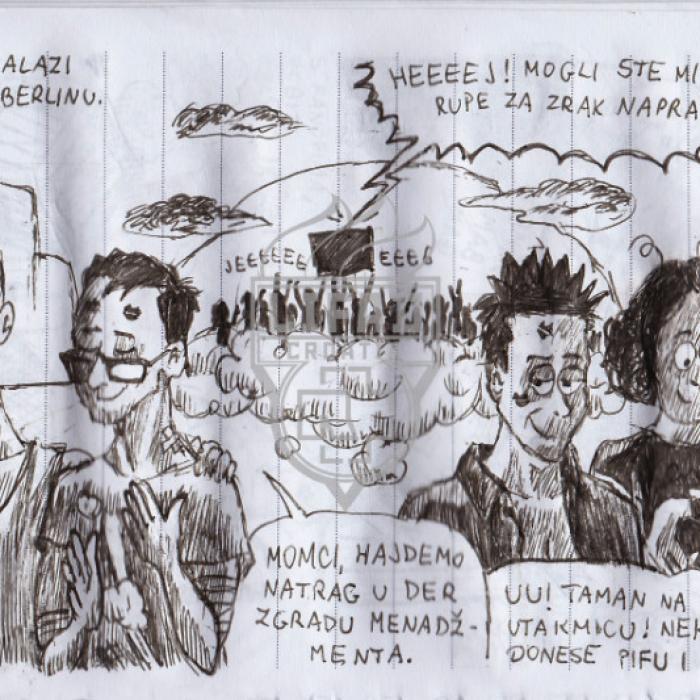 ALAZI
BERLINU.
HEEEEJ! MOGLI STE MI
RUPE ZA ZRAK NAPRA
JEEEEEE
EEEE
CROATE
MOMCI, HAJDEMO
NATRAG U DER
ZGRADU MENADŽ-
MENTA.
UU! TAMAN NA
UTAKMICU! NEK
DONESE PIFU I